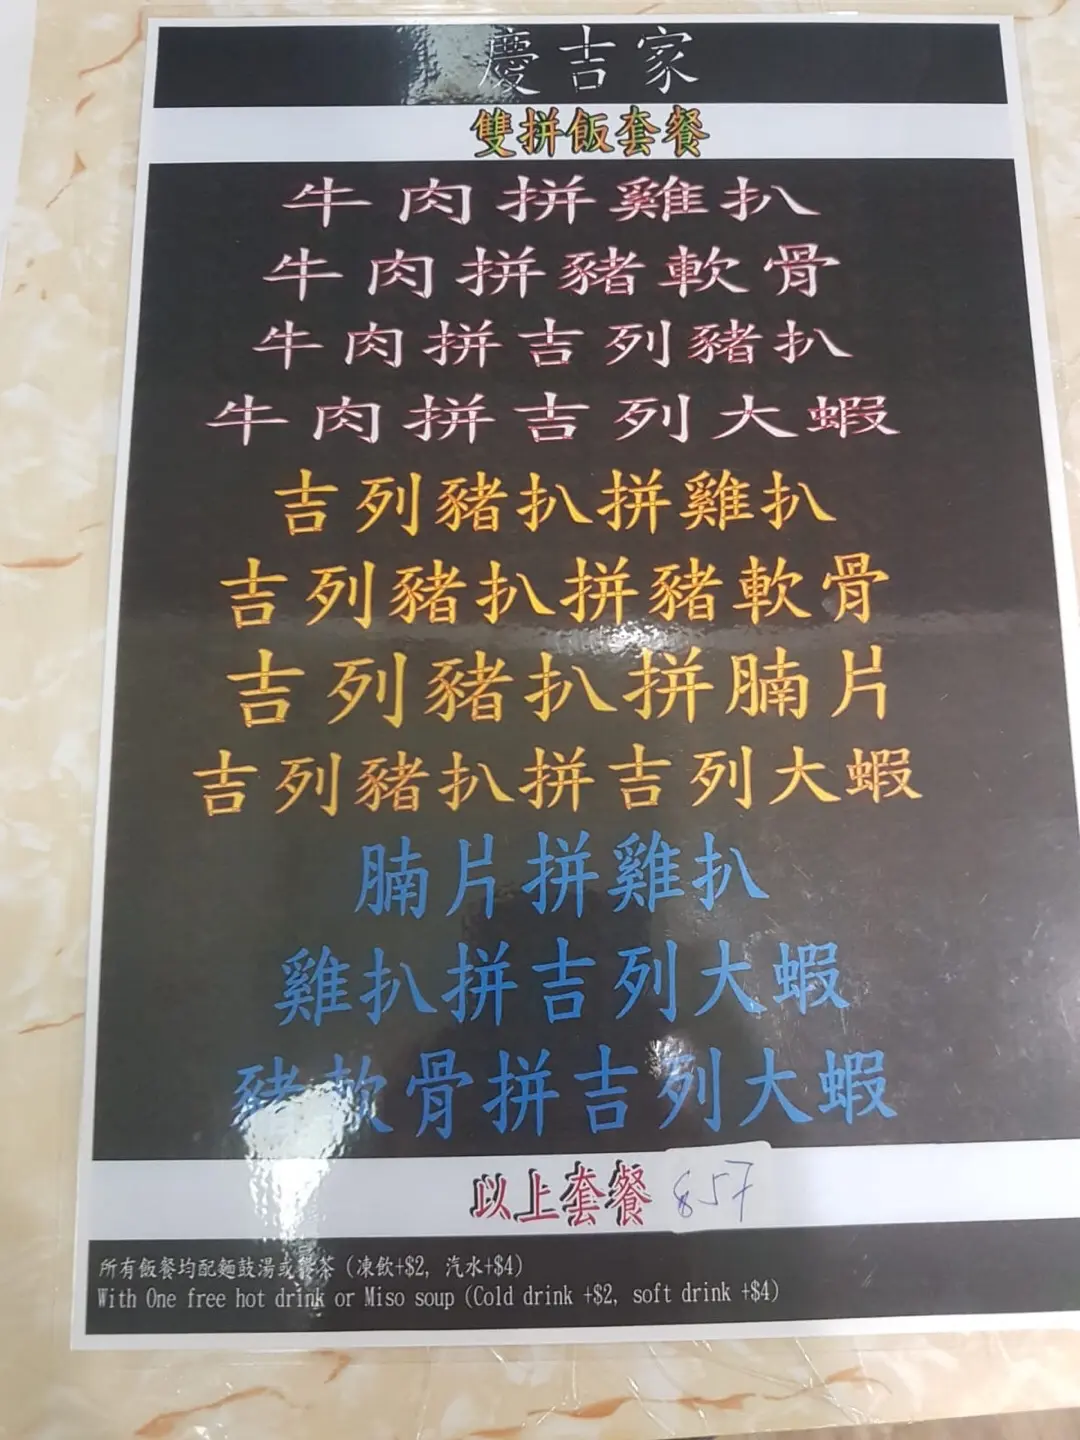 慶吉家
雙拼飯套餐
牛肉拼雞扒
牛肉拼豬軟骨
牛肉拼吉列豬扒
牛肉拼吉列大蝦
吉列豬扒拼雞扒
吉列豬扒拼豬軟骨
吉列豬扒拼腩片
吉列豬扒拼吉列大蝦
腩片拼雞扒
雞扒拼吉列大蝦
豬軟骨拼吉列大蝦
以上套餐 $57
所有飯餐均配麵豉湯或熱茶 (凍飲+$2, 汽水+$4)
With One free hot drink or Miso soup (Cold drink +$2, soft drink +$4)